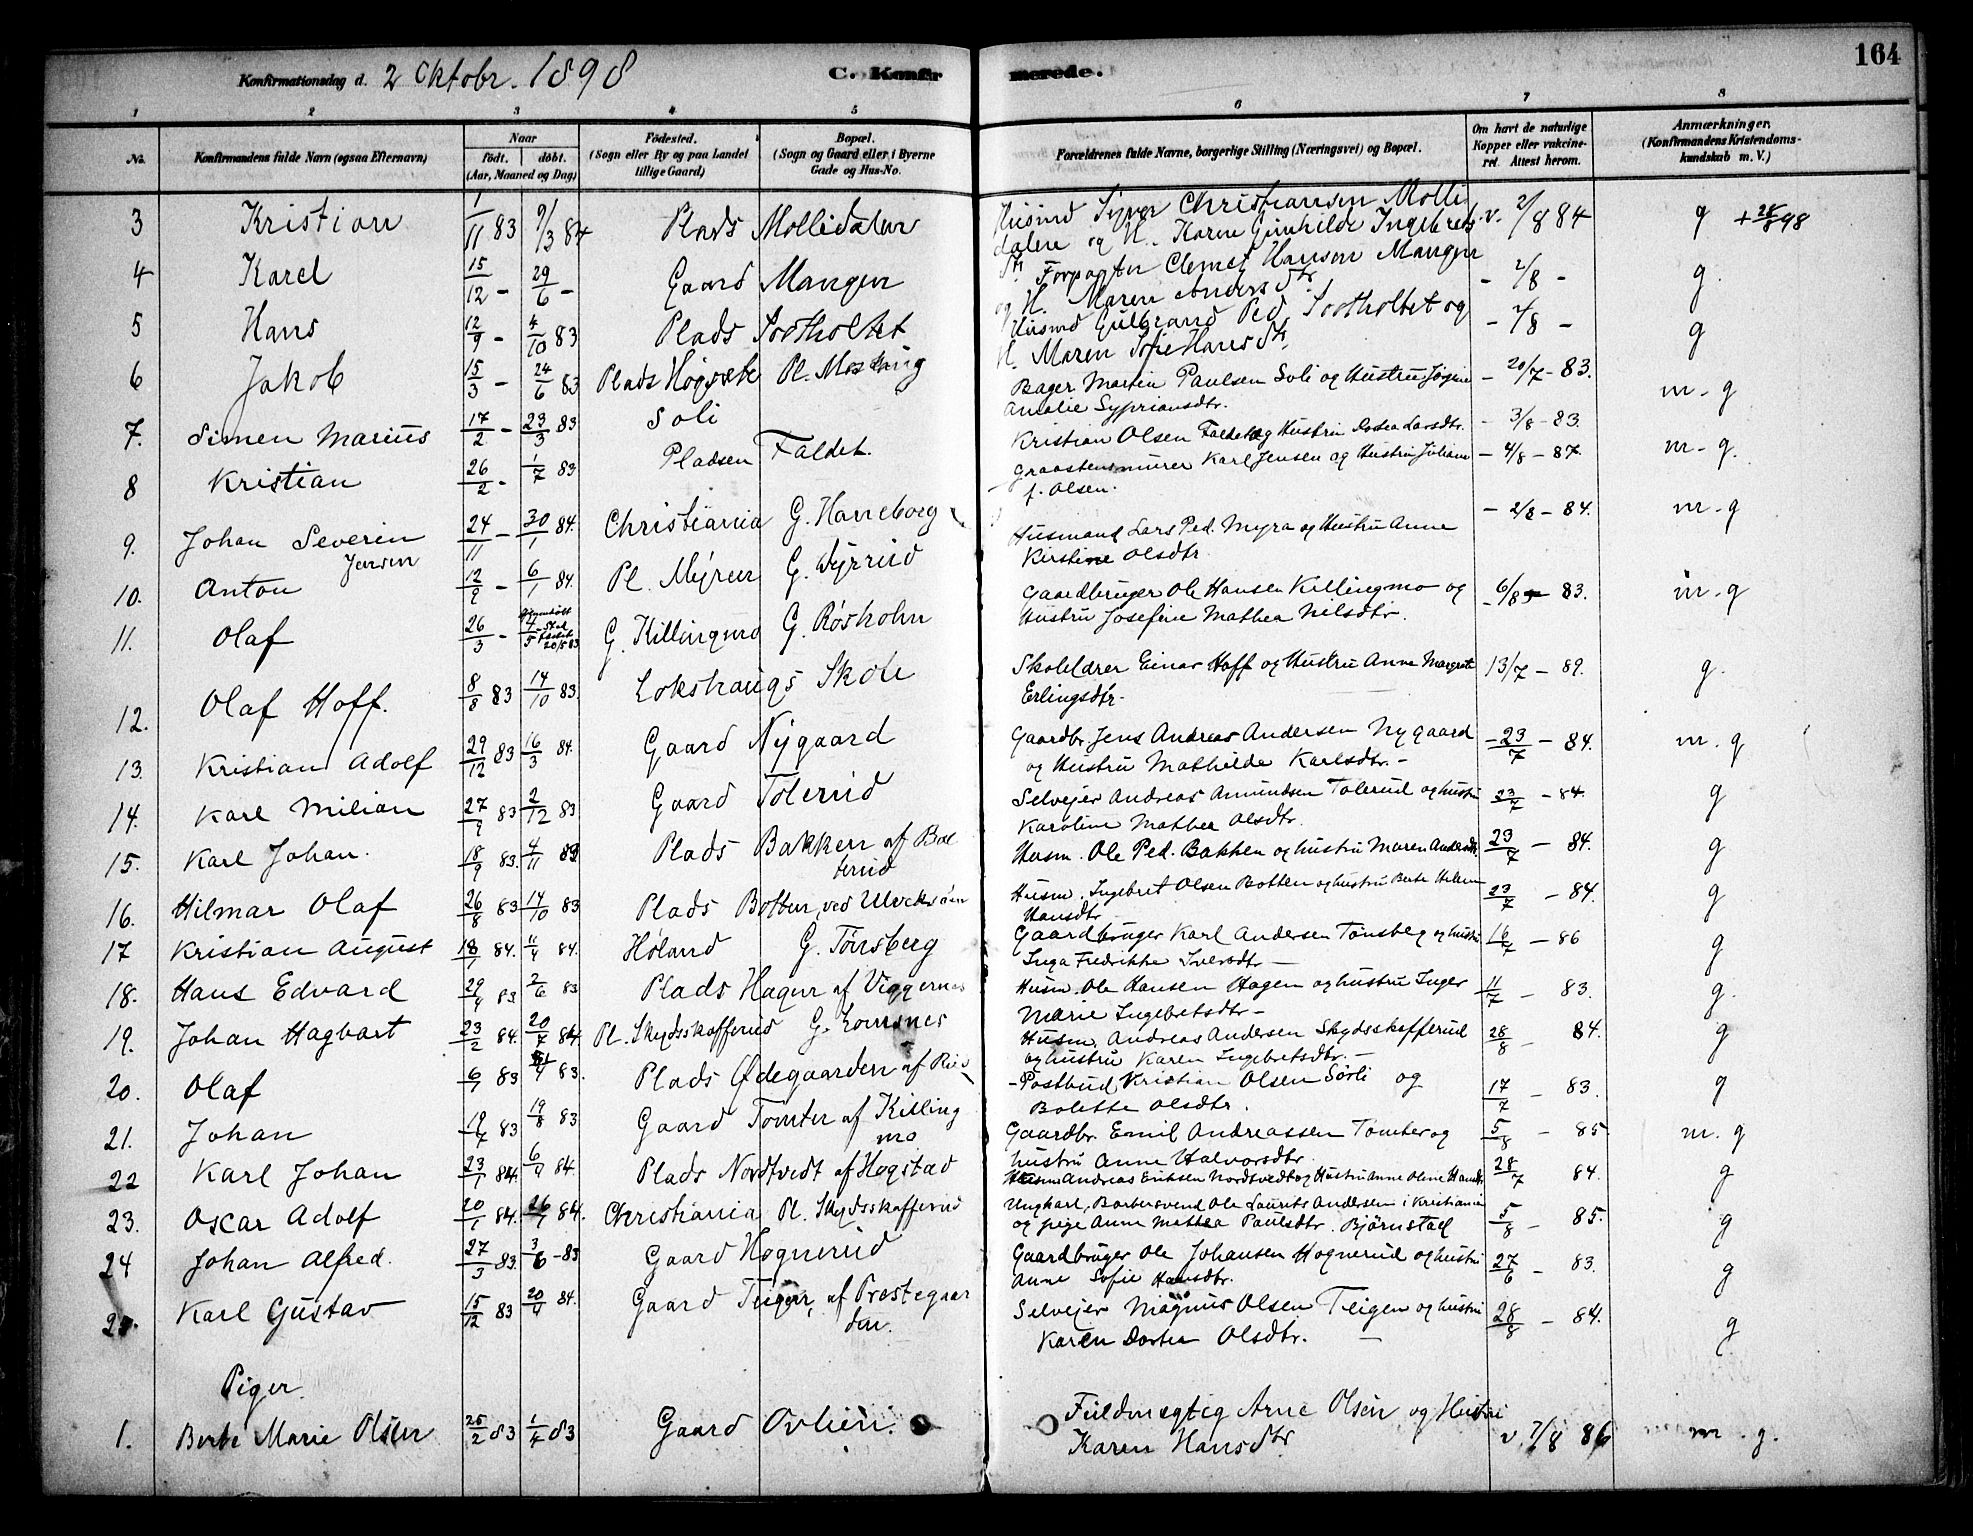 164
Konfirmationsdag d. 2 Oktobr. 1898 C. Konfirmerede.
1 2 3 4 5 6 7 8
No. Konfirmandens fulde Navn (ogsaa Efternavn) Naar født. døbt. (Aar, Maaned og Dag) Fødested. (Sogn eller By og paa Landet tillige Gaard) Bopæl. (Sogn og Gaard eller i Byerne Gade og Hus-No. Forældrenes fulde Navne, borgerlige Stilling (Næringsvei) og Bopæl. Om havt de naturlige Kopper eller vakcineret. Attest herom. Anmærkninger. (Konfirmandens Kristendomskundskab m. V.)
3 Kristian 1/11 83 9/3 84 Plads Mollidalen Husmd Syver Christiansen Mollidalen og H. Karen Gunhilde Ingebrets v. 2/8 84 g
4 Karel 15/12 - 29/6 - Gaard Mangen Forpagter Clemet Hansen Mangen og H. Maren Andersdtr - 2/8 - g.
5 Hans 12/9 - 4/10 83 Plads Sootholtet Husmd Gulbrand Ped. Sootholtet og H. Maren Sofie Hansdtr. - 2/8 - g
6 Jakob 15/3 - 24/6 83 Plads Høgsæte Pl. Moshaug Bager Martin Paulsen Soli og Hustru Amalie Sypriansdtr. - 20/7 - 83. m - g
7. Simen Marius 17/2 - 23/3 83 Soli Kristian Olsen Faldet og Hustru Dotea Larsdtr. - 3/8 - 83.
8 Kristian 26/2 - 1/7 83 Pladsen Faldet. Graastensmurer Karl Jensen og Hustru Juliane f. Olsen. - 4/8 - 87. m - g.
9. Johan Severin Jensen 24/11 - 30/1 84. Christiania G. Haneborg Husmand Lars Ped. Myra og Hustru Anne Kirstine Olsdtr. - 2/8 - 84. m - g
10. Anton 12/9 - 6/1 84. Pl. Myren G. Dyrrud Gaardbruger Ole Hansen Killingmo og Hustru Josefine Mathea Nilsdtr. 6/8 - 83. m - g
11. Olaf 26/3 - G. Killingmo G. Rosholm
12. Olaf Hoff. 8/8 83 14/10 83. Lokshaugs Skole Skolelærer Einar Hoff og Hustru Anne Margrete Erlingsdtr. 13/7 - 89. g.
13. Kristian Adolf 29/12 83 16/3 84. Gaard Nygaard Gaardbr. Jens Andreas Andersen Nygaard og Hustru Mathilde Karlsdtr. - 23/7 - 84. m. g
14. Karl Milian 27/9 83 2/12 83 Gaard Tolerud Selvejer Andreas Amundsen Tolerud og hustru Karoline Mathea Olsdtr. 23/7 - 84. g
15. Karl Johan. 18/9 83. 4/11 83 Plads Bakken af Bolterud Husm. Ole Ped. Bakken og hustru Maren Andersdtr. 23/7 - 84. g
16. Hilmar Olaf 26/8 83 14/10 83 Plads Botten, ved Husm. Ingebret Olsen Botten og hustru Berte Helene Hansdtr 23/7 - 84. g
17 Kristian August 18/1 84. 11/4 84. Høland G. Tønsberg Gaardbruger Karl Andersen Tønsberg og hustru Inga Fredrikke Iversdtr - 16/7 - 86 g
18. Hans Edvard 29/4 83 2/6 83 Plads Hagen af Viggernes Husm. Ole Hansen Hagen og hustru Inger Marie Ingebretsdtr - 11/7 - 83. g.
19. Johan Hagbart 23/2 84. 20/7 84. Pl. Skydsskafferud G. Lomsnes Husm. Andreas Andersen Skydsskafferud og hustru Karen Ingebretsdtr. - 28/8 - 84. g
20. Olaf 6/1 83 83. Plads Ødegaarden af - Postbud Kristian Olsen Sørli og Bolette Olsdtr. 17/7 - 83. g
21. Johan 83 19/8 83 Gaard Tomter af Killingmo Gaardbr. Emil Andreassen Tomter og hustru Anne Halvorsdtr. 5/8 - 85 m. g
22 Karl Johan 23/1 84. 6/4 84 Plads Nordtvedt af Hogstad Husm Andreas Eriksen Nordtvedt og Hustru Anne Oline Hansdtr. 28/7 84. g
23. Oscar Adolf 20/1 84. 26/1 84. Christiania Pl. Skydsskafferud Ungkarl, Barbersvend Ole Laurits Andersen i Kristiania og pige Anne Mathea Paulsdtr. Bjørnstad 5/8 - 85. g
24 Johan Alfred. 27/3 83. 3/6 - 83 Gaard Hognerud Gaardbruger Ole Johansen Hognerud og hustru Anne Sofie Hansdtr. 27/6 - 83. g
25. Karl Gustav 15/12 83 20/4 84. Gaard Teigen af Prestegaarden. Selvejer Magnus Olsen Teigen og hustru Karen Dortea Olsdtr. - 28/8 - 84. g
Piger.
1. Berte Marie Olsen 25/2 83 1/4 83 Gaard Ovlien. Fuldmægtig Arne Olsen og Hustru Karen Hansdtr v. 7/8 86 m. g.